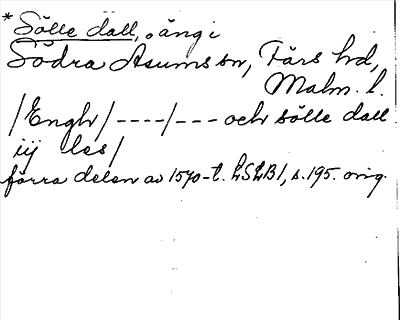 * Sölle dall, äng i
Södra Asums sn, Färs hd,
Malm. l.
/Engh/ ----/--- och sölle dall
iij les/
förra delen av 1570-t. LSLB1, s. 195. orig.